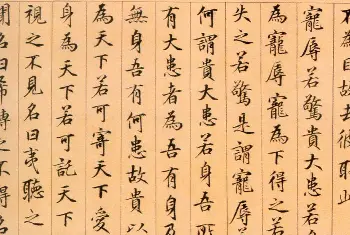 不為目故去彼取此
寵辱若驚貴大患若
為寵辱寵為下得之若
失之若驚是謂寵辱若
何謂貴大患若身吾所
有大患者為吾有身及
無身吾有何患故貴以
為天下若可寄天下愛
身為天下若可託天下
視之不見名曰夷聽之
聞名曰希搏之不得名